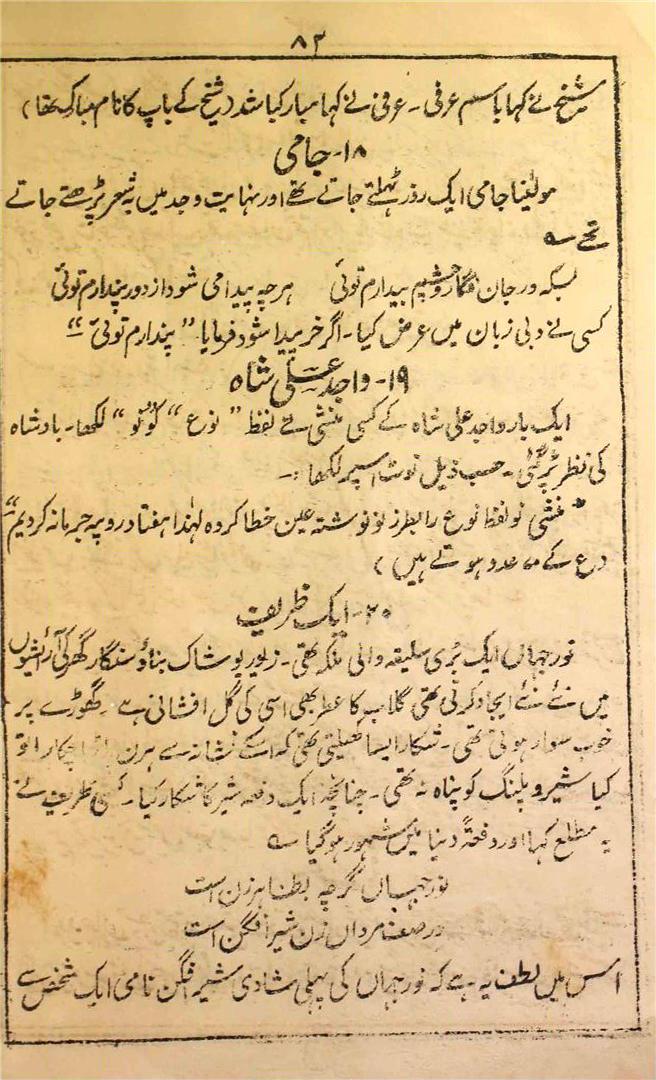 ۸۳
شیخ نے کہا باسم عرفی۔ عرفی نے کہا مبارک باشد (شیخ کے باپ کا نام مبارک تھا)
۱۸۔ جامی
مولٰینا جامی ایک روز ٹہلتے جاتے تھے اور نہایت وجد میں یہ شعر پڑھتے جاتے
تھے ؎
بسکہ در جان فگار و چشم بیدارم توئی    ہرچہ پیدا می شود از دور پندارم توئی
کسی نے دبی زبان میں عرض کیا۔ اگر خر پیدا شود فرمایا ”پندارم توئی“
۱۹۔ واجد علی شاہ
ایک بار واجد علی شاہ کے کسی منشی نے لفظ ”نوع“ کو ”نو“ لکھا۔ بادشاہ
کی نظر پڑ گئی۔ حسب ذیل نوٹ اسپر لکھا :-
”منشی نو لفظ نوع را بطرز نو نوشتہ عین خطا کردہ لہٰذا ہفتاد روپیہ جرمانہ کردیم“
(ع کے ۷۰ عدد ہوتے ہیں)
۲۰۔ ایک ظریف
نورجہاں ایک بڑی سلیقہ والی ملکہ تھی۔ زیور پوشاک بناؤ سنگار گھر کی آرائشوں
میں نئے نئے ایجاد کرتی تھی گلاب کا عطر بھی اسی کی گل افشانی ہے۔ گھوڑے پر
خوب سوار ہوتی تھی۔ شکار ایسا کھیلتی تھی کہ اسکے نشانہ سے ہرن تو
کیا شیر و پلنگ کو پناہ نہ تھی۔ چنانچہ ایک دفعہ شیر کا شکار کیا۔ کسی ظریف نے
یہ مطلع کہا اور دفعۃً دنیا میں مشہور ہوگیا ؎
نورجہاں گرچہ بظاہر زن است
در صف مرداں زن شیر افگن است
اس میں لطف یہ ہے کہ نورجہاں کی پہلی شادی شیر افگن نامی ایک شخص سے